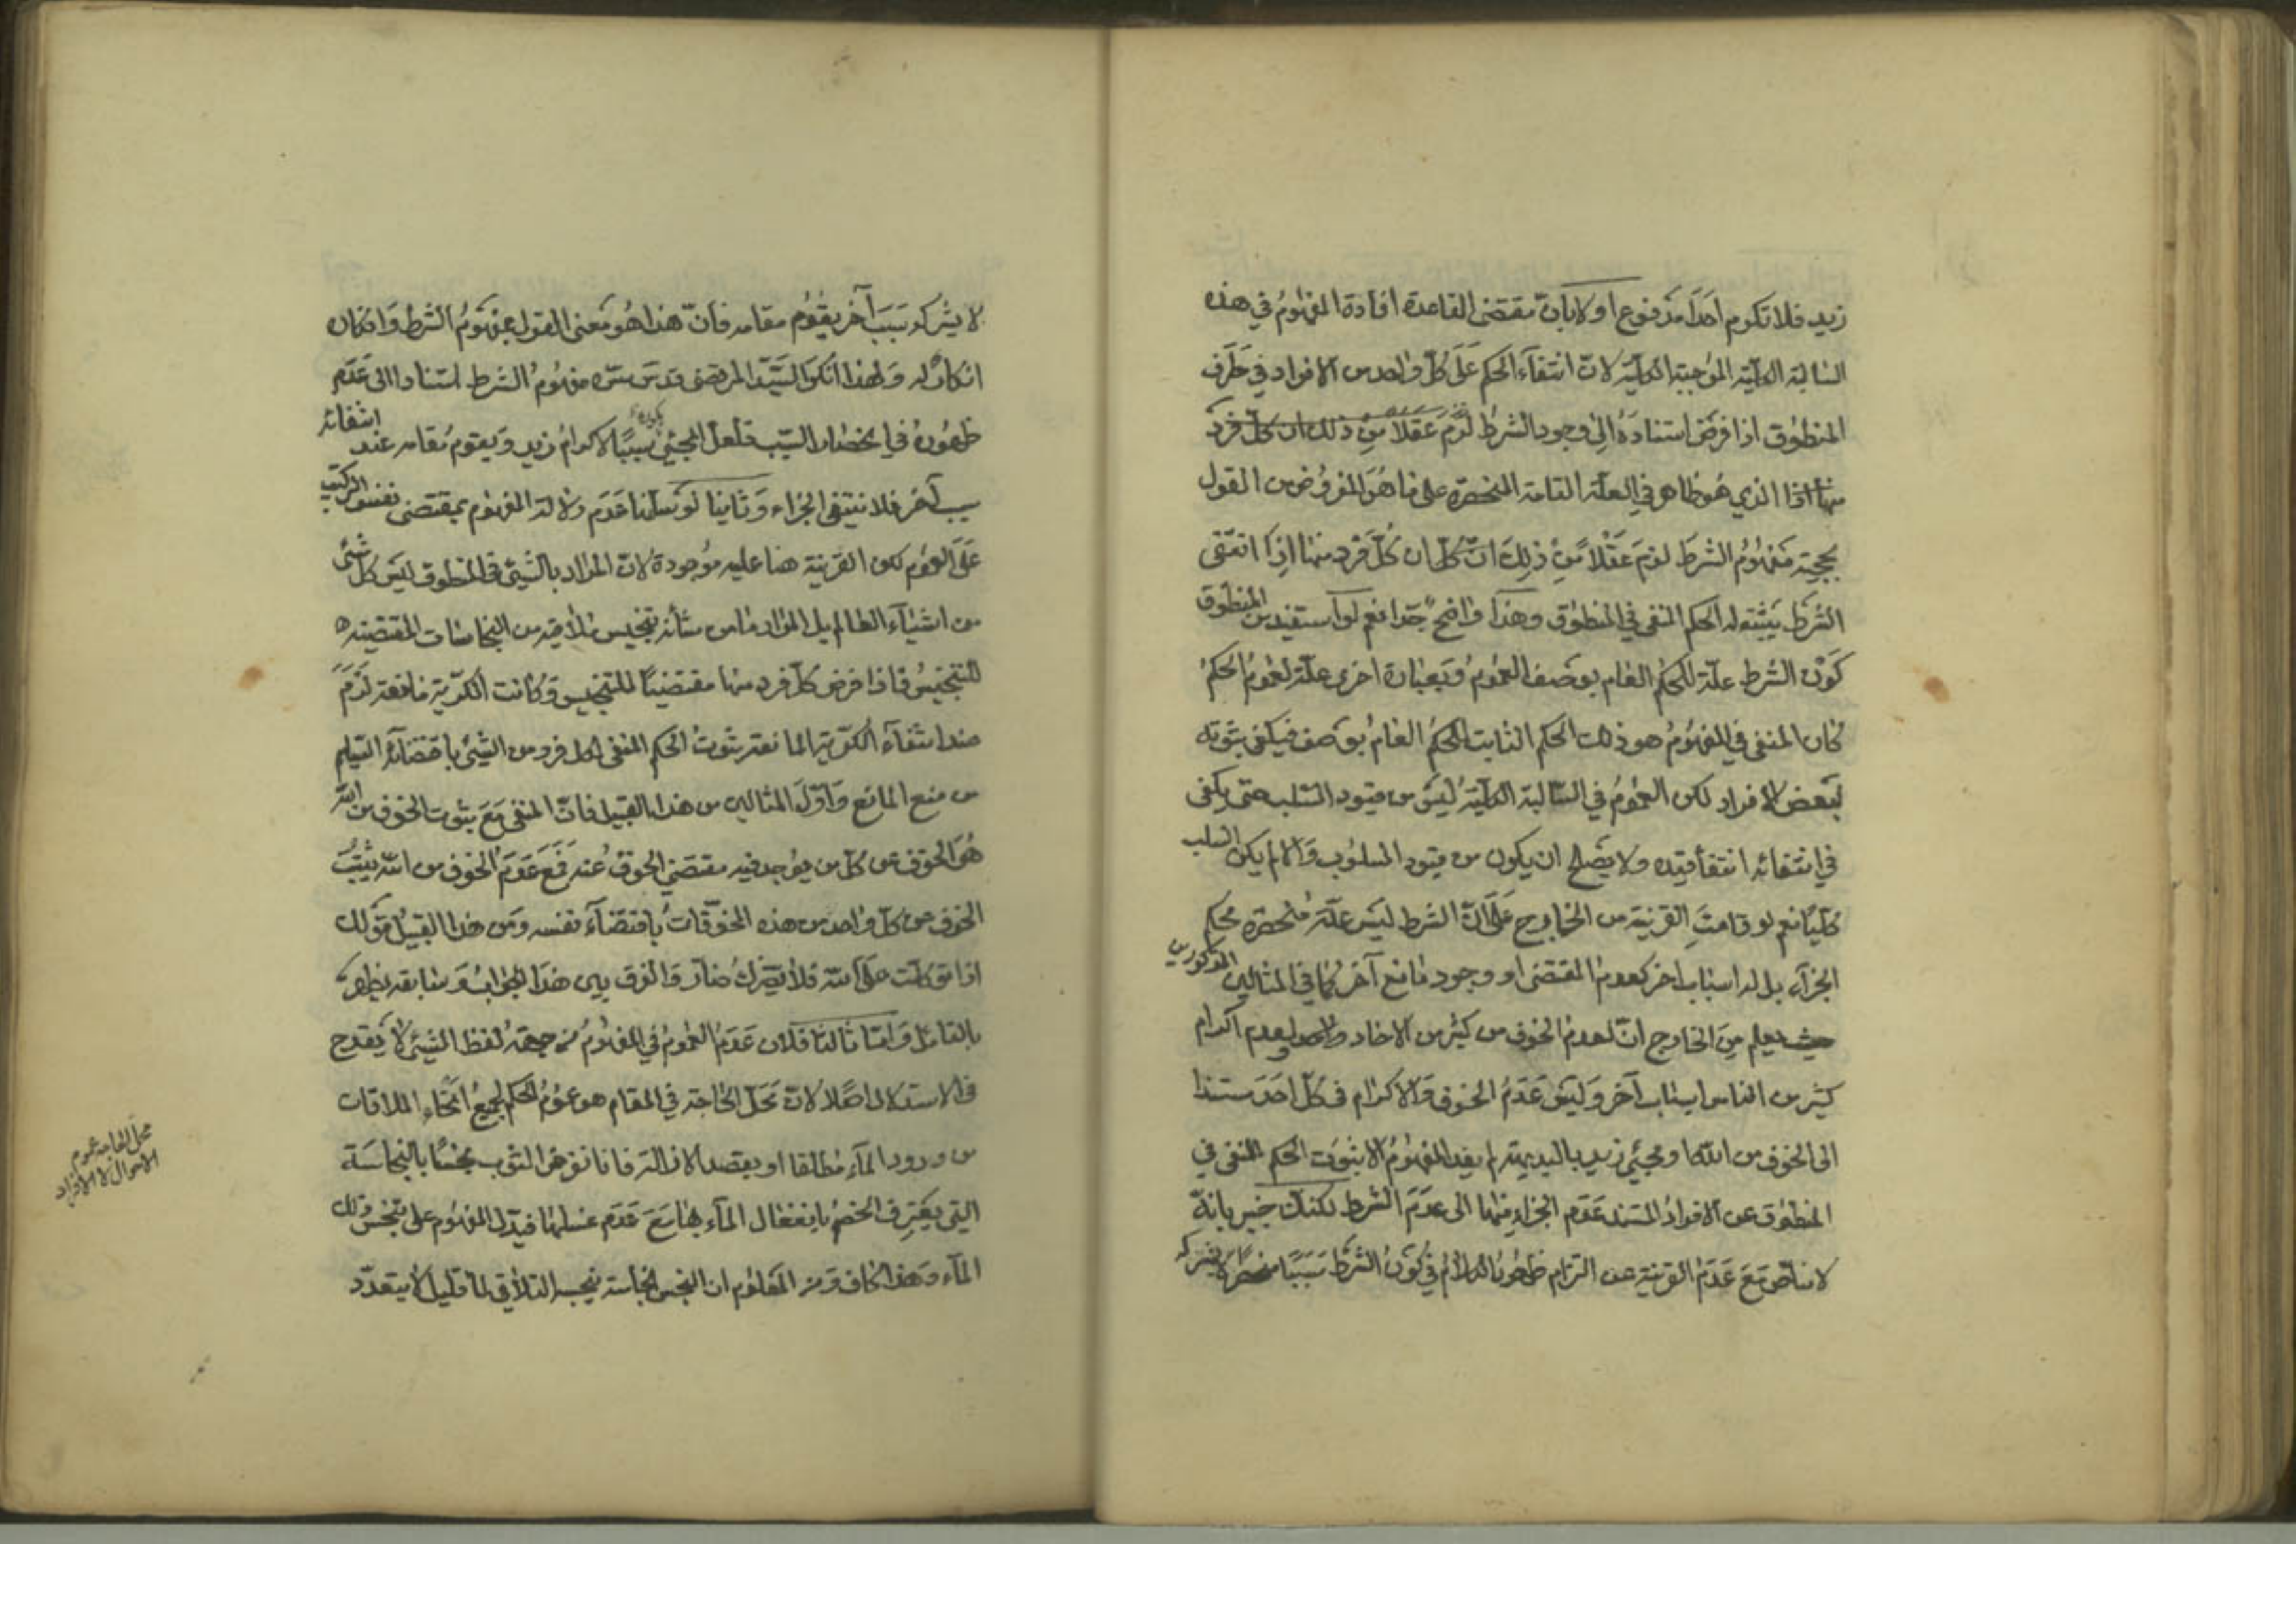 زيد فلا تكرم احدا مدفوع اولا بان مقتضى القاعدة افادة المفهوم في هذه
السالبة الكلية الموجبة الكلية لان انتفاء الحكم عَلَى كلّ واحد من الافراد في طَرف
المنطوق اذا فرض استناده الى وجود الشرط لزم عقلا من ذلك ان كل فرد
منها اذا الذي هو ظاهر في العلة التامة المنحصرة على ما هو المفروض من القول
بحجية مفهوم الشرط لزم عقلا من ذلك ان كان كل فرد منها اذا انتفى
الشرط يثبت له الحكم المنفى في المنطوق وهذا واضح جدا نعم لو استفيد من المنطوق
كون الشرط علة للحكم العام بوصف العموم وبعبارة اخرى علة لعموم الحكم
كان المنفى في المفهوم هو ذلك الحكم الثابت للحكم العام بوصف فيكفى ثبوته
لبعض الافراد لكن العموم في السالبة الكلية ليس من قيود السلب حتى يكفى
في انتفائه انتفاء قيده ولا يصلح ان يكون من قيود المسلوب والا لم يكن السلب
كليا نعم لو قامت القرينة من الخارج على ان الشرط ليس علة منحصره لحكم
الجزاء بل له اسباب اخر كعدم المقتضى او وجود مانع آخر كما في المثالين المذكورين
حيث يعلم من الخارج ان لعدم الخوف من كثير من الاحاد ولعدم اكرام
كثير من الناس اسباب آخر وليس عَدَم الخوف والاكرام في كل احد مستندا
الى الخوف من الله او مجيئ زيد بالبديهة لم يفد المفهوم الا ثبوت الحكم المنفى في
المنطوق عن الافراد المستند عدم الجزاء فيها الى عدم الشرط لكنك خبير بانه
لا مناص مع عدم القرينة عن التزام ظهور الكلام في كون الشرط سببا منحصرا لا يشركه
لا يشركه سبب آخر يقوم مقامه فان هذا هو معنى القول بمفهوم الشرط وانكاره
انكار له ولهذا انكر السيد المرتضى قدس سره مفهوم الشرط استنادا الى عدم
ظهوره في انحصار السبب فلعل المجيئ يكون سببا لاكرام زيد ويقوم مقامه عند انتفائه
سبب آخر فلا ينتفى الجزاء وثانيا لو سلمنا عدم دلالة المفهوم بمقتضى نفس التركيب
على العموم لكن القرينة هنا عليه موجودة لان المراد بالشيئ في المنطوق ليس كل شئ
من اشياء العالم بل المراد ما من شأنه تنجيس ملاقيه من النجاسات المقتضية
للتنجيس فاذا فرض كل فرد منها مقتضيا للتنجيس وكانت الكرية مانعة لزم
عند انتفاء الكرية المانعة ثبوت الحكم المنفى لكل فرد من الشيئ باقتضائه السليم
من منع المانع واول المثالين من هذا القبيل فان المنفى مع ثبوت الخوف من الله
هو الخوف من كل من يوجد فيه مقتضى الخوف عنه فمع عدم الخوف من الله يثبت
الخوف من كل واحد من هذه المخوفات باقتضاء نفسه ومن هذا القبيل قولك
اذا توكلت على الله فلا يضرك ضار والفرق بين هذا الجواب وسابقه يظهر
بالتأمل واما ثالثا فلان عدم العموم في المفهوم من جهة لفظ الشيئ لا يقدح
في الاستدلال اصلا لان محل الحاجة في المقام هو عموم الحكم لجميع انحاء الملاقات
من ورود الماء مطلقا او بقصد الازالة فانا نفرض الثوب نجسا بالنجاسة
التي يعترف الخصم بانفعال الماء بها مع عدم غسلها فيدل المفهوم على تنجس ذلك
الماء وهذا كاف ومن المعلوم ان النجس نجاسته بحسب التلاقي لماء قليل لا يتعدد
محل الحاجة عموم
الاحوال لا الافراد